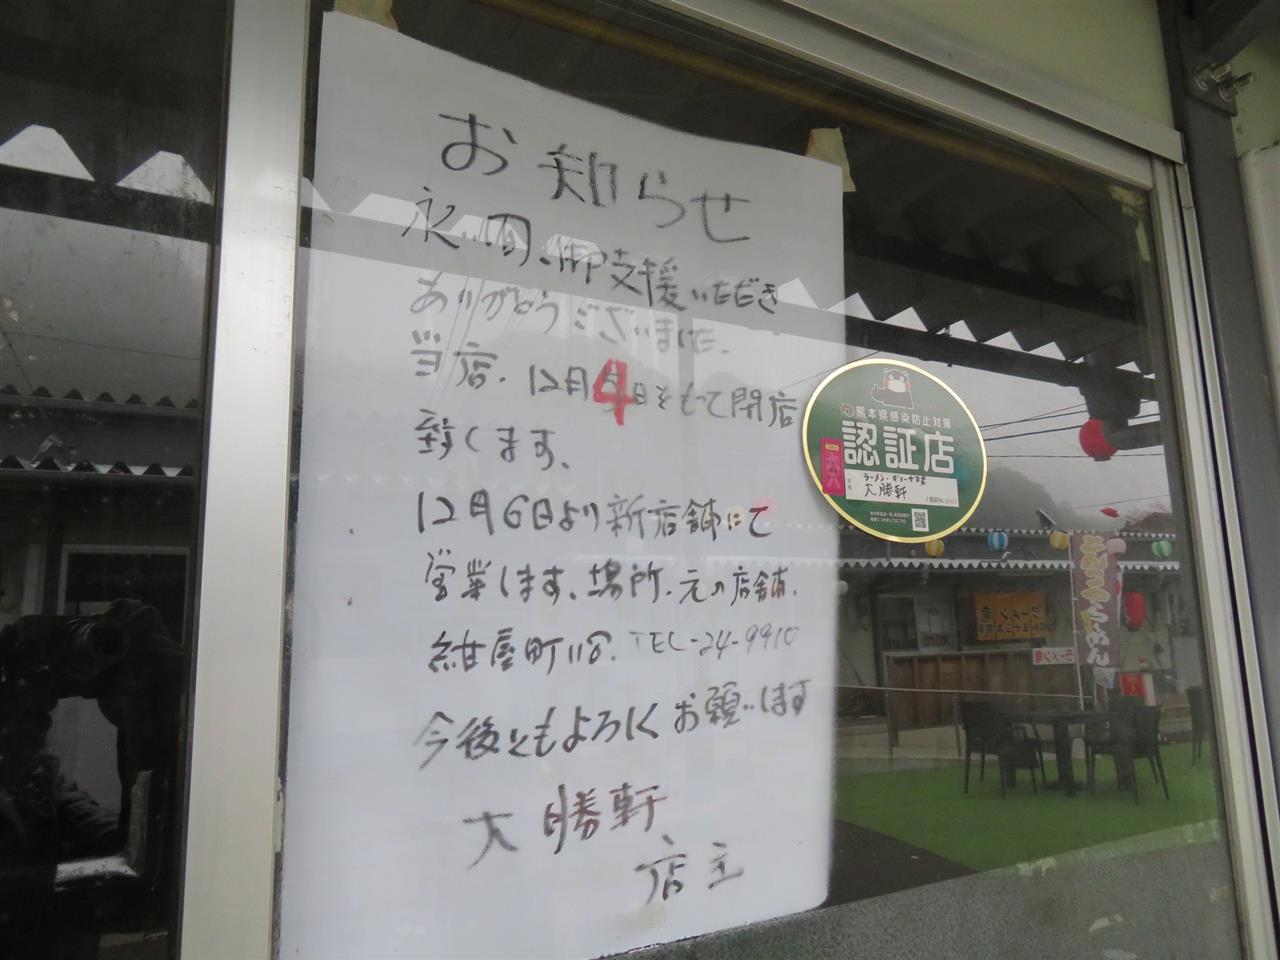 お知らせ
永い間、御支援いただき
ありがとうございました。
当店、12月4日をもって閉店
致します、
12月6日より新店舗にて
営業します、場所、元の店舗、
紺屋町118、TEL-24-9910
今後ともよろしくお願いします
大勝軒
店主
熊本県感染防止対策
認証店
ラーメン・ギョーザの店
大勝軒
とんこつらーめん
ラーメン